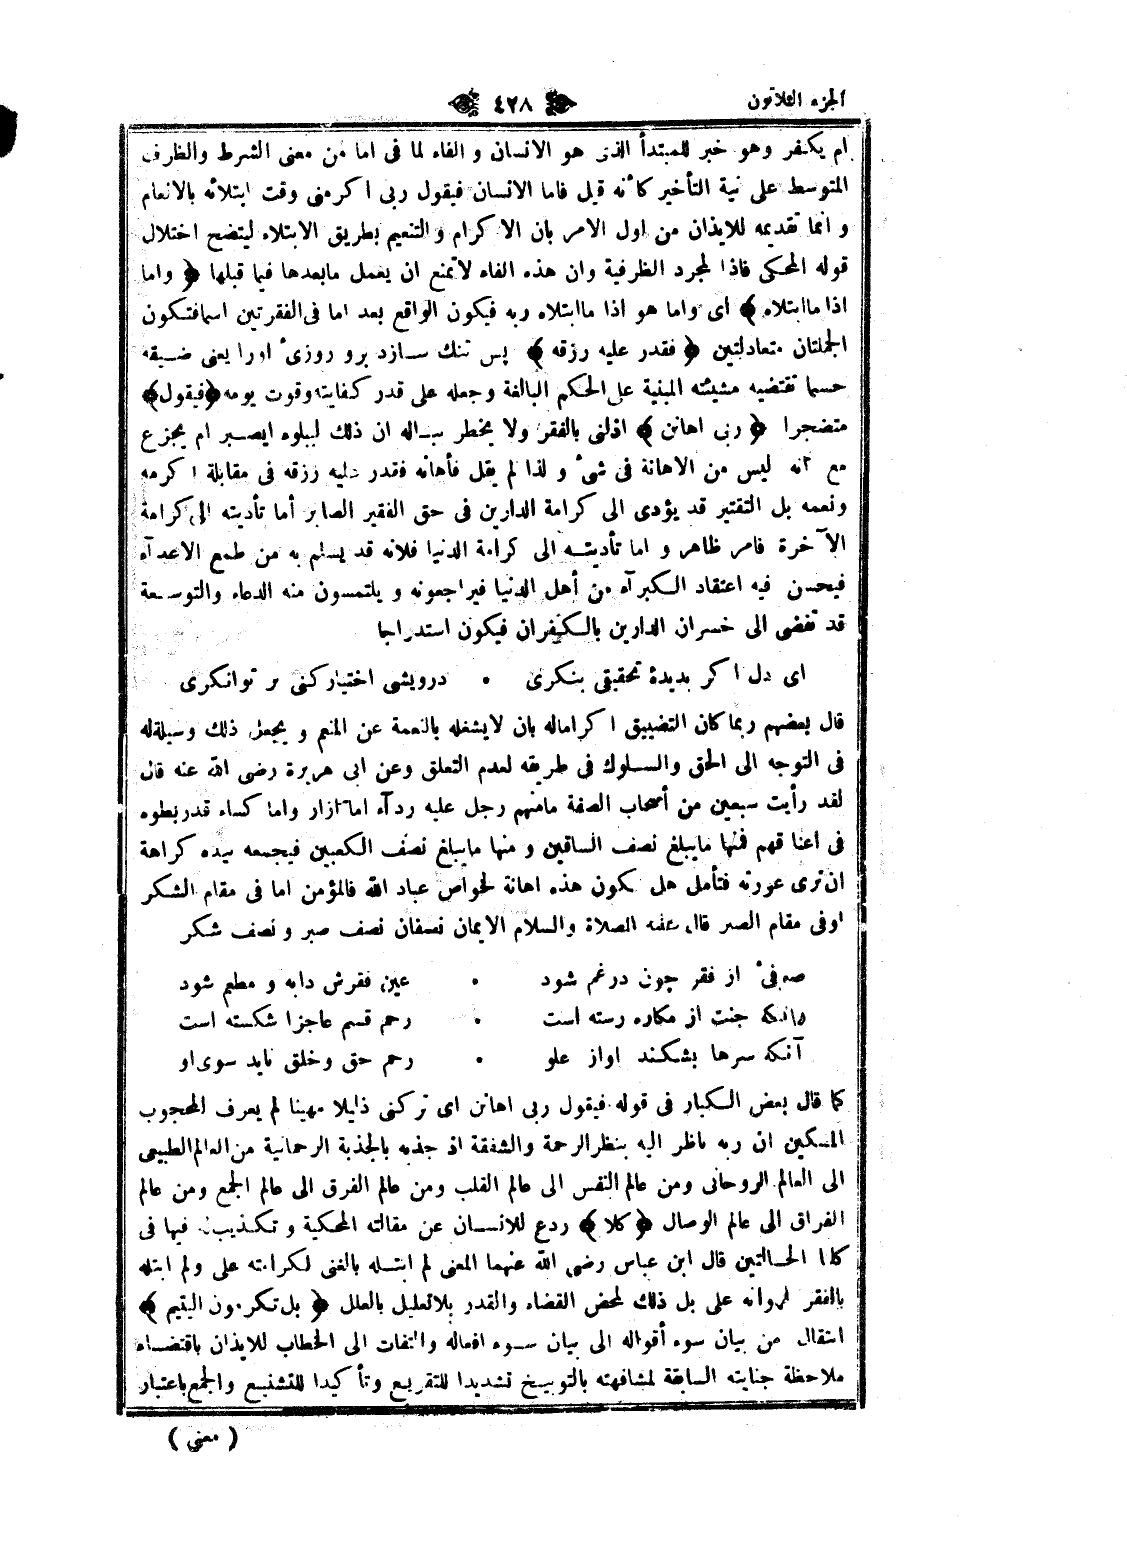 الجزء الثلاثون
٤٢٨
ام يكفر وهو خبر للمبتدأ الذى هو الانسان و الفاء لما فى اما من معنى الشرط والظرف
المتوسط على نية التأخير كأنه قيل فاما الانسان فيقول ربى اكرمنى وقت ابتلائه بالانعام
و انما تقديمه للايذان من اول الامر بان الاكرام و التنعيم بطريق الابتلاء ليتضح اختلال
قوله المحكى فاذا لمجرد الظرفية وان هذه الفاء لاتمنع ان يعمل مابعدها فيما قبلها ﴿ واما
اذا ماابتلاه ﴾ اى واما هو اذا ماابتلاه ربه فيكون الواقع بعد اما فى الفقرتين اسما فتكون
الجملتان متعادلتين ﴿ فقدر عليه رزقه ﴾ پس تنك سازد برو روزىء اورا يعنى ضيقه
حسبما تقتضيه مشيئته المبنية على الحكم البالغة وجعله على قدر كفايته وقوت يومه ﴿ فيقول ﴾
متضجرا ﴿ ربى اهانن ﴾ اذلنى بالفقر ولا يخطر بباله ان ذلك ليبلوه ايصبر ام يجزع
مع انه ليس من الاهانة فى شىء و لذا لم يقل فأهانه فقدر عليه رزقه فى مقابلة اكرمه
ونعمه بل التقتير قد يؤدى الى كرامة الدارين فى حق الفقير الصابر أما تأديته الى كرامة
الآخرة فامر ظاهر و اما تأديته الى كرامة الدنيا فلانه قد يسلم به من طمع الاعدآء
فيحسن فيه اعتقاد الكبرآء من أهل الدنيا فيراجعونه و يلتمسون منه الدعاء والتوسعة
قد تفضى الى خسران الدارين بالكفران فيكون استدراجا
اى دل اكر بديدهٔ تحقيق بنكرى • درويشى اختيار كنى بر توانكرى
قال بعضهم ربما كان التضييق اكراماله بان لايشغله بالنعمة عن المنعم و يجعل ذلك وسيلة له
فى التوجه الى الحق والسلوك فى طريقه لعدم التعلق وعن ابى هريرة رضى الله عنه قال
لقد رأيت سبعين من أصحاب الصفة مامنهم رجل عليه ردآء اما ازار واما كساء قد ربطوه
فى اعنا قهم فمنها مايبلغ نصف الساقين و منها مايبلغ نصف الكعبين فيجمعه بيده كراهة
ان ترى عورته فتأمل هل يكون هذه اهانة لخواص عباد الله فالمؤمن اما فى مقام الشكر
اوفى مقام الصبر قال عليه الصلاة والسلام الايمان نصفان نصف صبر و نصف شكر
صوفىء از فقر چون درغم شود • عين فقرش دايه و مطعم شود
زانكه جنت از مكاره رسته است • رحم قسم عاجزا شكسته است
آنكه سرها بشكند اواز علو • رحم حق وخلق نايد سوى او
كما قال بعض الكبار فى قوله فيقول ربى اهانن اى تركنى ذليلا مهينا لم يعرف المحجوب
المسكين ان ربه ناظر اليه بنظر الرحمة والشفقة اذ جذبه بالجذبة الرحمانية من العالم الطبيعى
الى العالم الروحانى ومن عالم النفس الى عالم القلب ومن عالم الفرق الى عالم الجمع ومن عالم
الفراق الى عالم الوصال ﴿ كلا ﴾ ردع للانسان عن مقالته المحكية و تكذيب له فيها فى
كلتا الحالتين قال ابن عباس رضى الله عنهما المعنى لم ابتله بالغنى لكرامته على ولم ابتله
بالفقر لهوانه على بل ذلك لمحض القضاء والقدر بلاتعليل بالعلل ﴿ بل تكرمون اليتيم ﴾
انتقال من بيان سوء أقواله الى بيان سوء افعاله والتفات الى الخطاب للايذان باقتضاء
ملاحظة جنايته السابقة لمشافهته بالتوبيخ تشديدا للتقريع وتأكيدا للتشنيع والجمع باعتبار
( معنى )